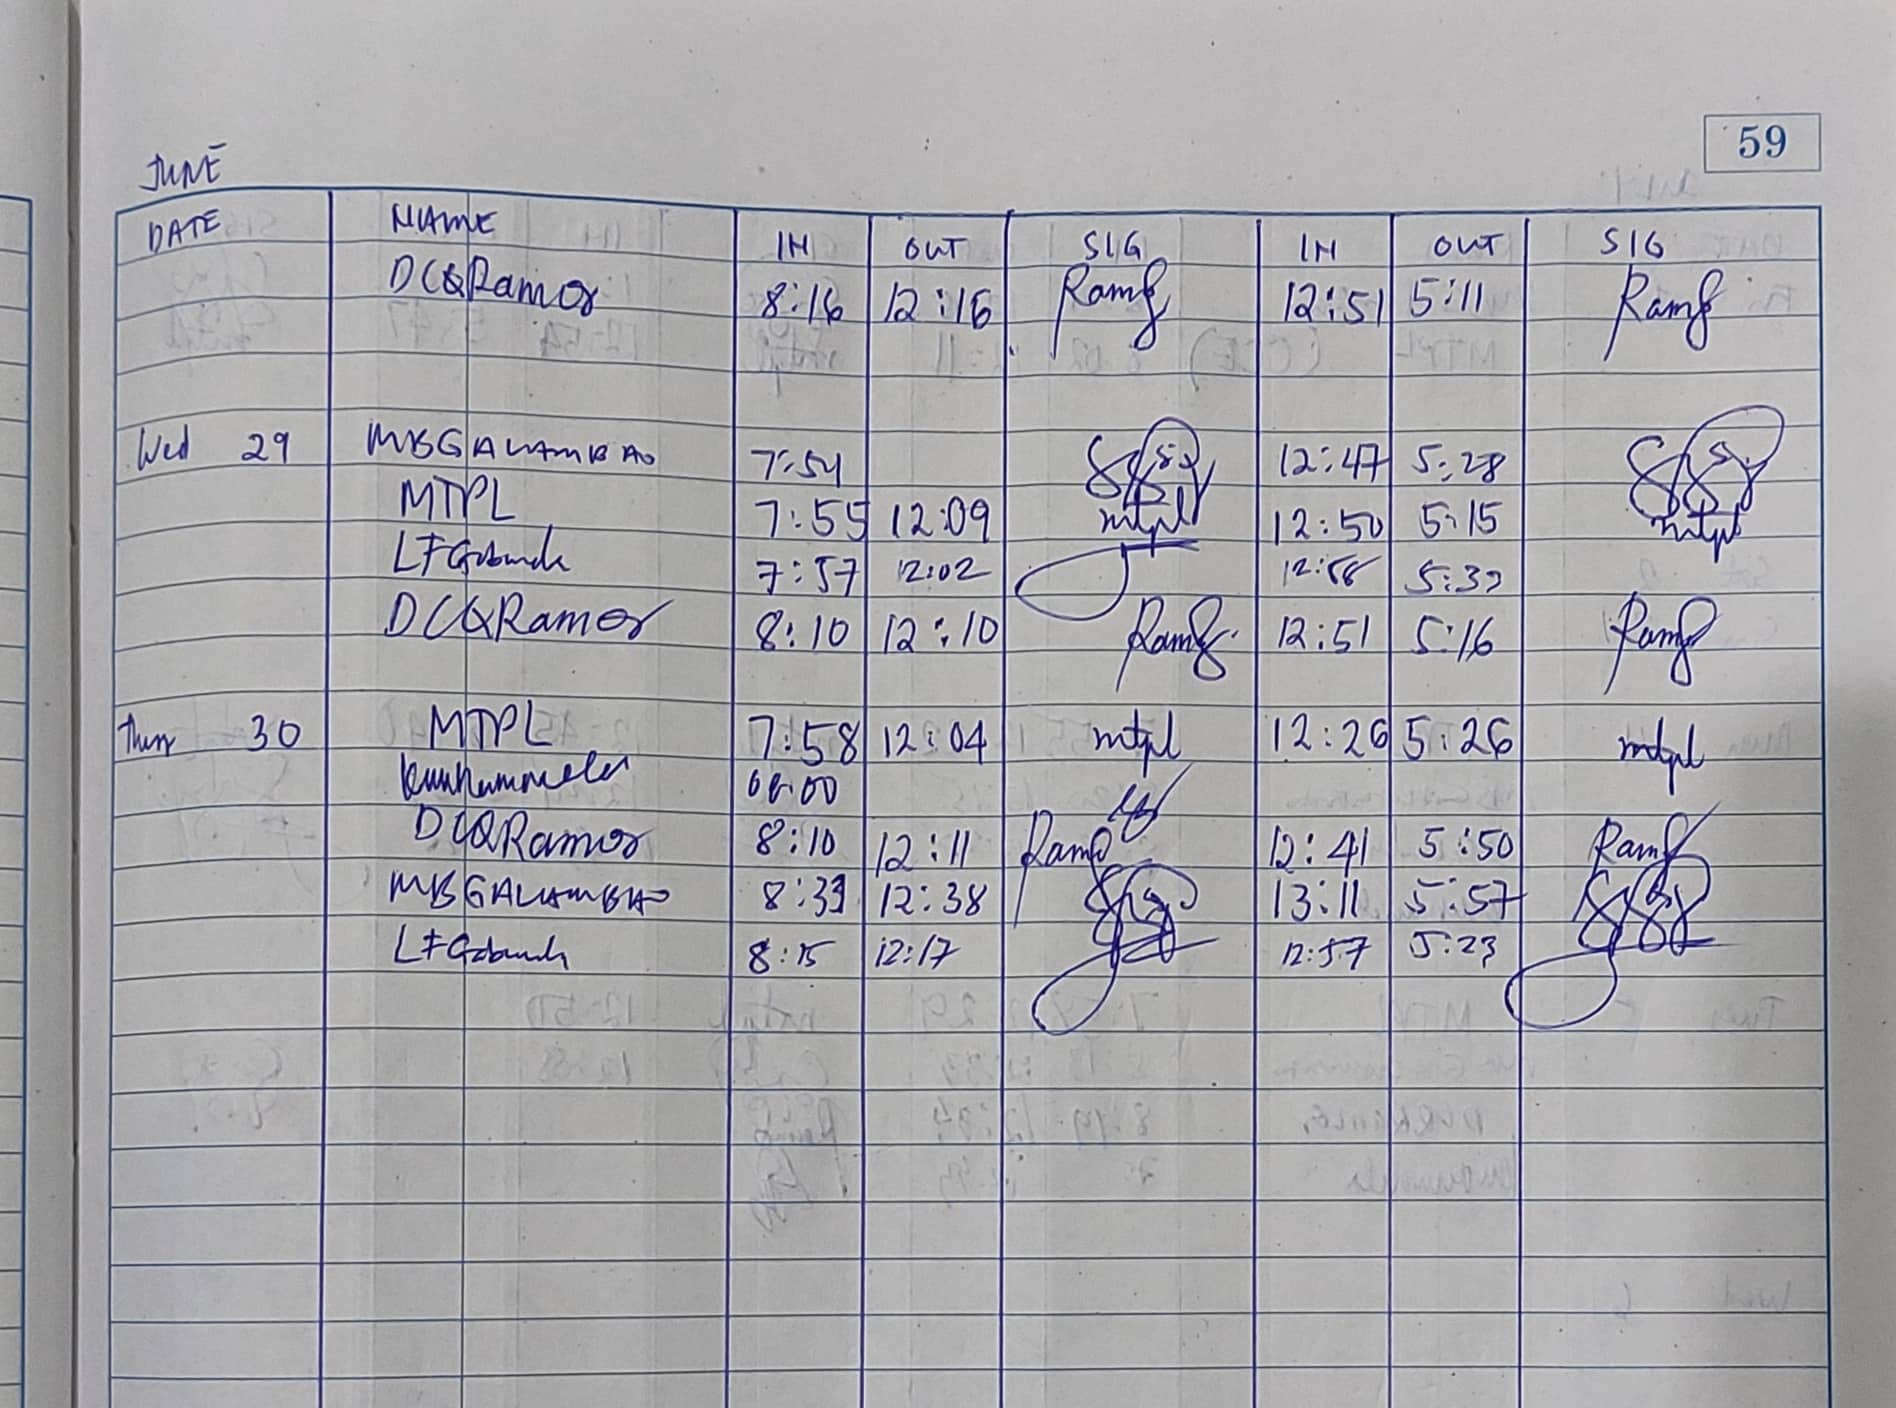 59
JUNE
DATE NAME IN OUT SIG IN OUT SIG
DCQRamos 8:16 12:16 Ramos 12:51 5:11 Ramos
Wed 29 MBGALAMBAO 7:54 12:47 5:28
MTPL 7:55 12:09 mtpl 12:50 5:15 mtpl
7:57 12:02 5:33
DCQRamos 8:10 12:10 Ramos 12:51 5:16 Ramos
Thur 30 MTPL 7:58 12:04 mtpl 12:26 5:26 mtpl
DCQRamos 8:10 12:11 Ramos 12:41 5:50 Ramos
MBGALAMBAO 8:39 12:38 13:11 5:57
8:15 12:17 12:57 5:23